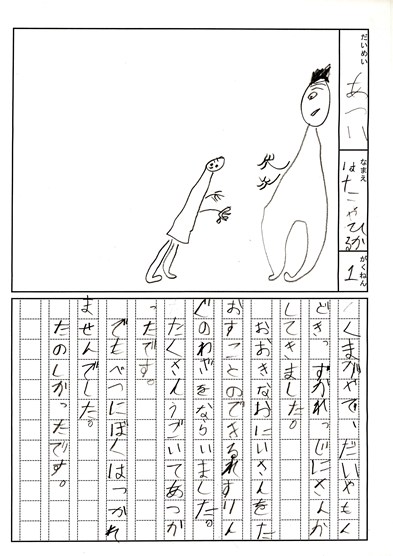 だいめい
あつい
なまえ
はたこやひかる
がくねん
1
くまがやで、だいやもん
どきっずかれっじにさんか
してきました。
おおきなおにいさんをた
おすことのできるれすりん
ぐのわざをならいました。
たくさんうごいてあつか
ったです。
でもべつにぼくはつかれ
ませんでした。
たのしかったです。